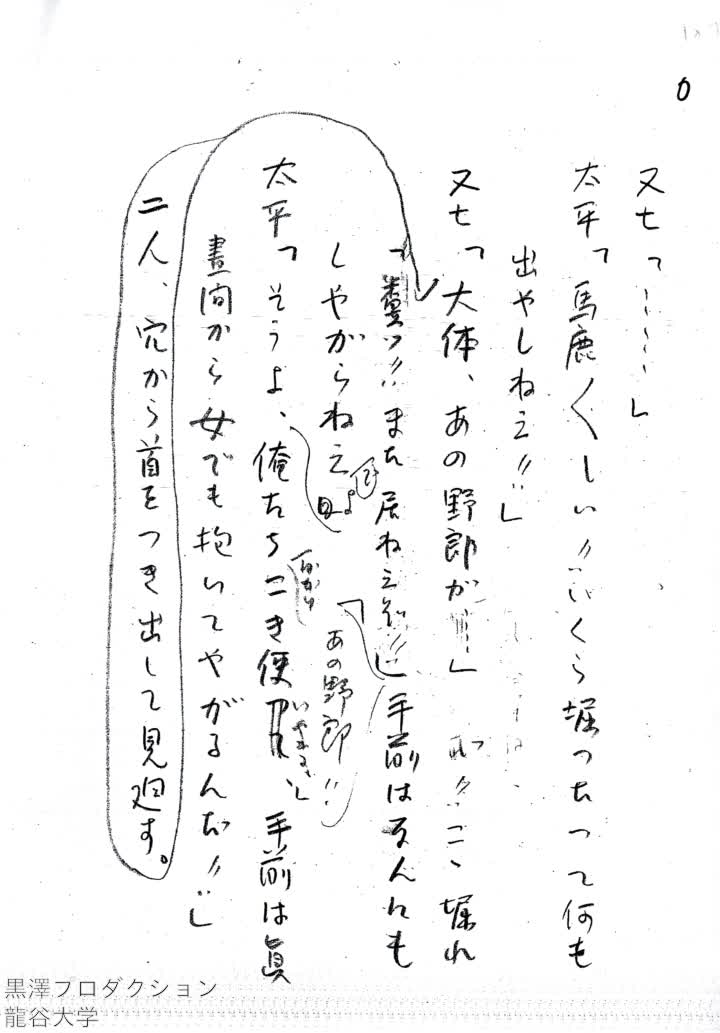 0
又七「……」
太平「馬鹿〱しい!!いくら堀つたつて何も
出やしねえ!!」
又七「大体、あの野郎が……」
こゝ堀れ
「糞ッ!!また居ねえぞ!!」手前はなんにも
しやがらねえ
よ
あの野郎!!
太平「そうよ、俺たちこき使
ばかり
いやがる」
手前は真
昼間から女でも抱いてやがるんだ!!」
二人、穴から首をつき出して見廻す。
黒澤プロダクション
龍谷大学